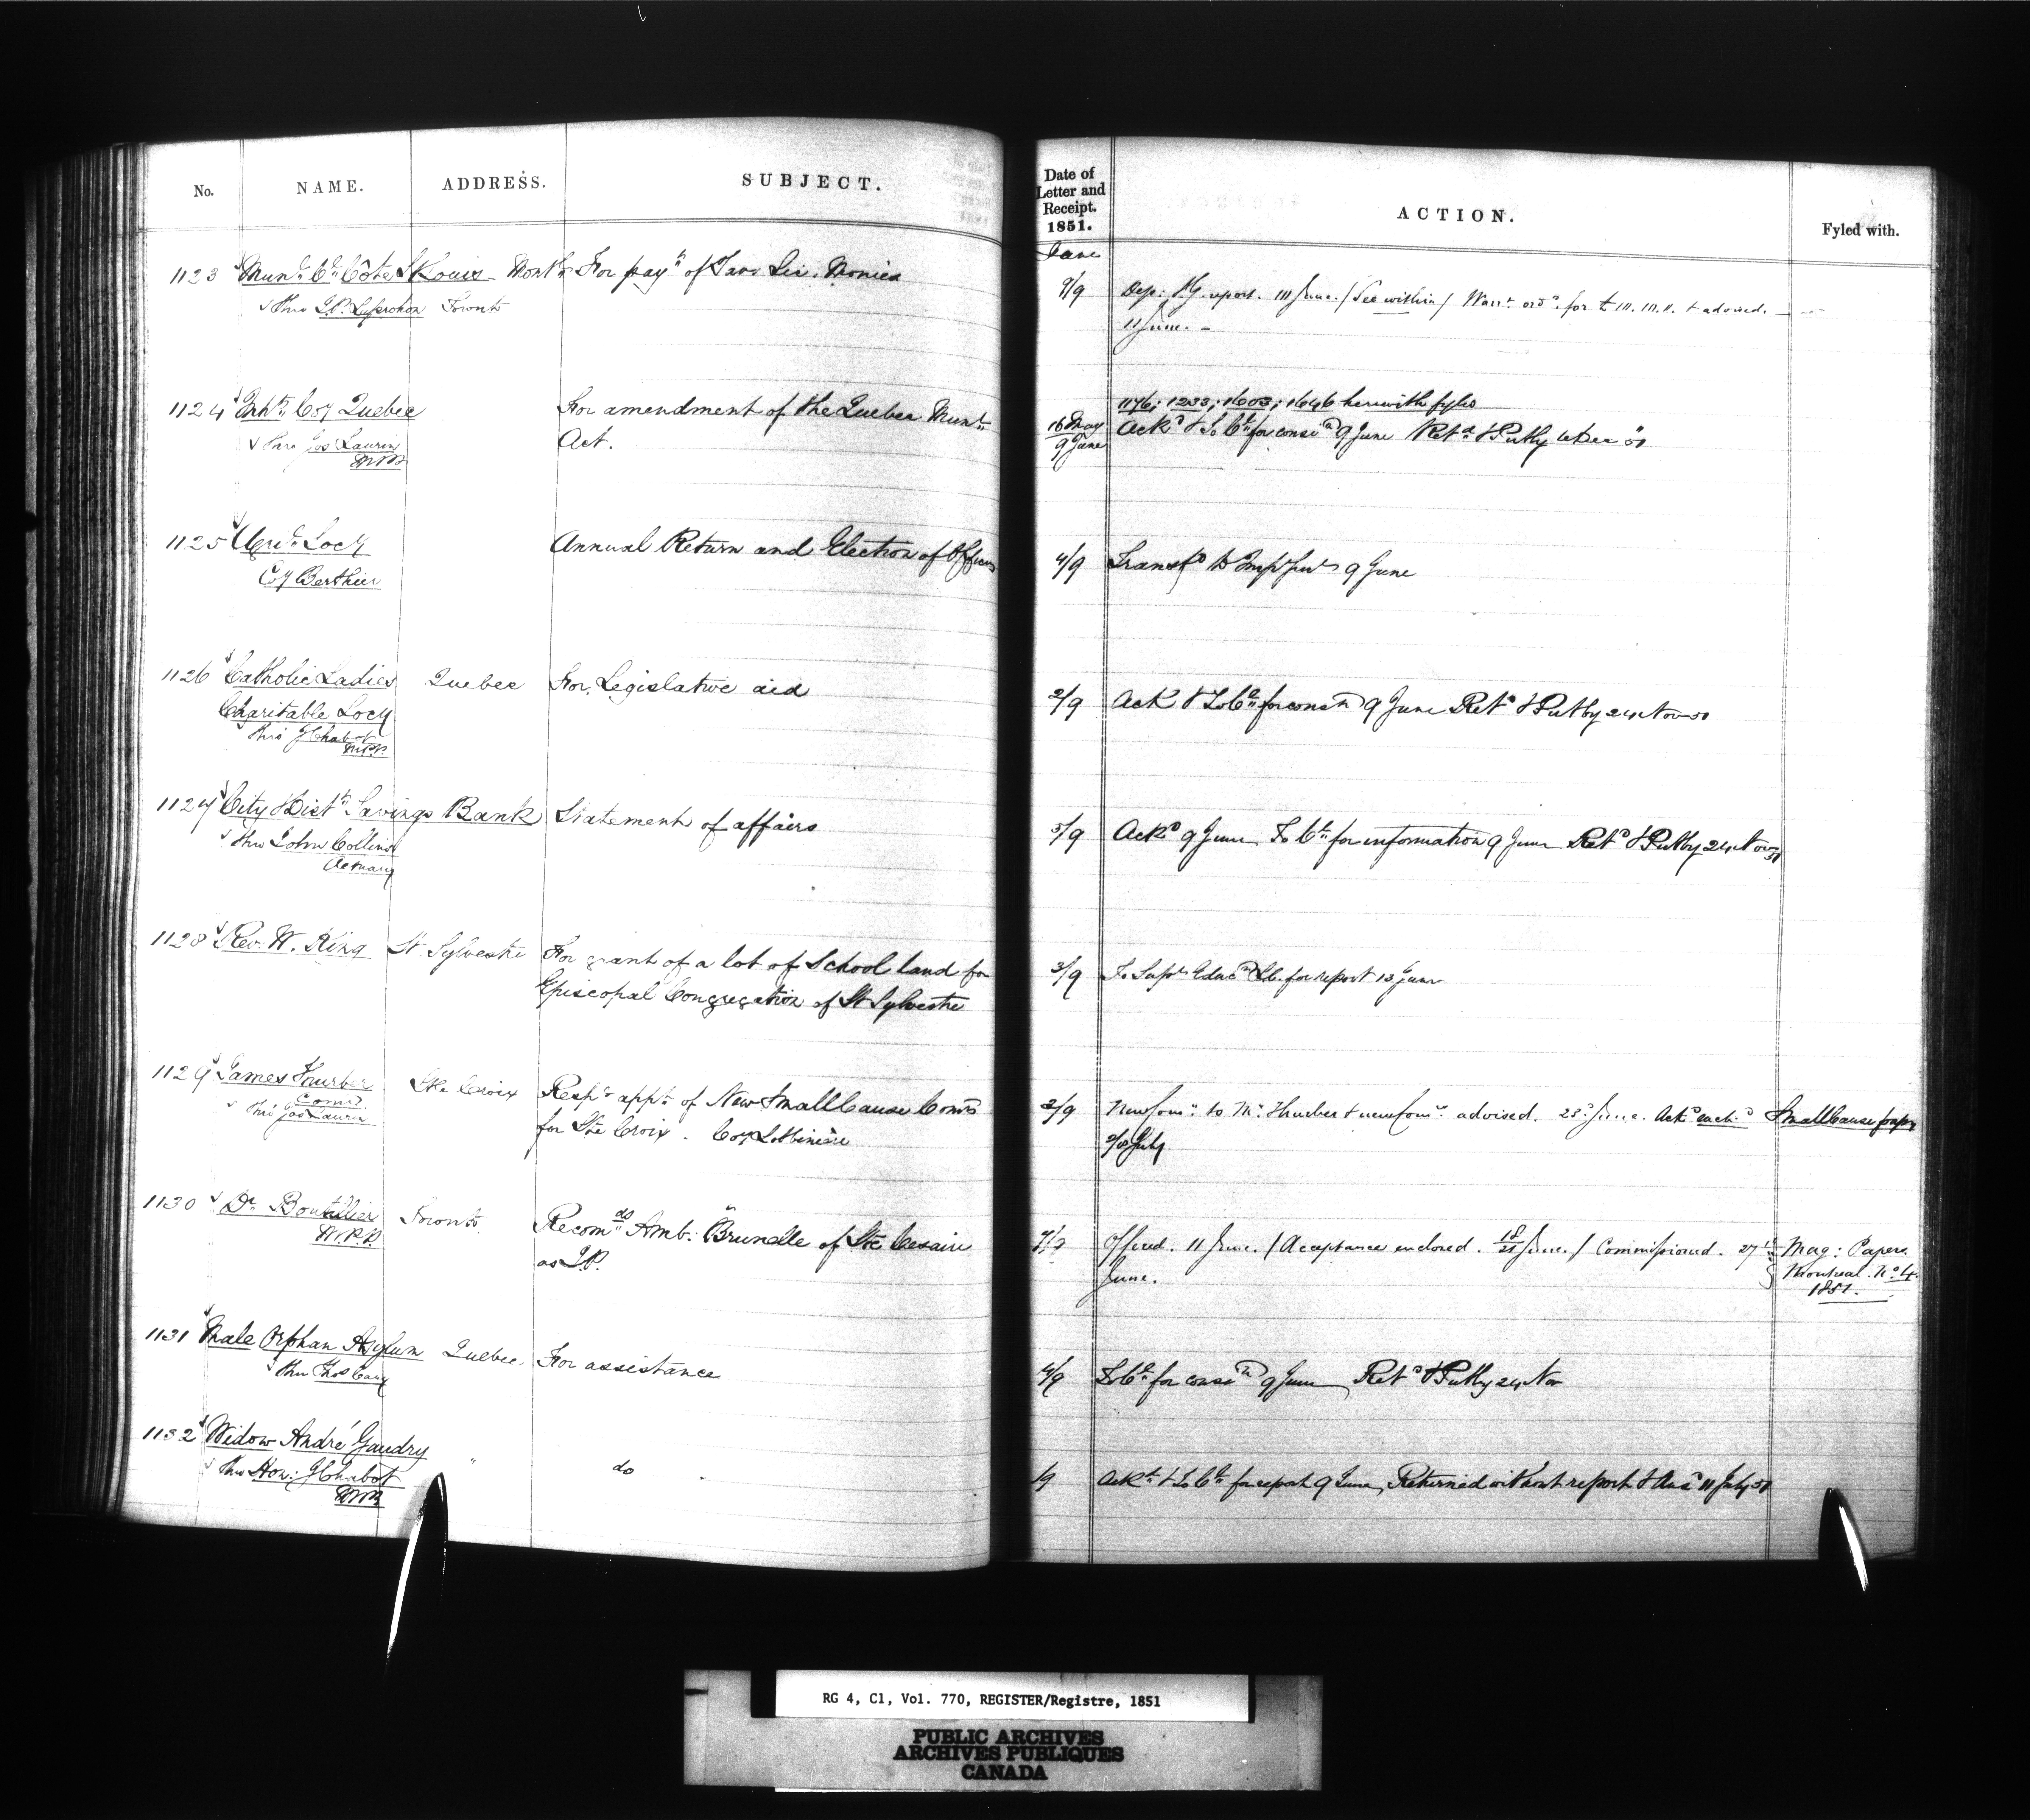 No. NAME. ADDRESS. SUBJECT.
Date of Letter and Receipt. 1851. ACTION. Fyled with.
June
1123 Munt. Cl. Côte St Louis Montl. For payt. of Tavn Lic. Monies
thro J.P. Leprohon Toronto
9/9 Dep: I.G. report. 11 June. / See within / Warrt. ordd. for & advised.
11 June.
1124 Inhts. Coy Quebec For amendment of the Quebec Munl.
Act.
thro Jos Laurin
MPP
1176; 1233; 1603; 1646 herewith fyled
16 May
9 June
Ackd & To Cte. for consn 9 June Retd & Putby Decr 51
1125 Agril. Socy Annual Return and Election of Officers
Coy Berthier
4/9 Transfd to Inspr Genl 9 June
1126 Catholic Ladies Quebec For Legislative aid
Charitable Socy
thro J Chabot
MPP
2/9 Ack & To Cte. for consn 9 June Retd & Putby 24 Nov 51
1127 City & Distt. Savings Bank Statement of affairs
thro John Collins
Actuary
5/9 Ackd 9 June To Cte. for information 9 June Retd & Putby 24 Nov 51
1128 Rev. W. King St Sylvestre For grant of a lot of School land for
Episcopal Congregation of St Sylvestre
3/9 To Supt Educn LC. for report 13 June
1129 James Thurber Ste Croix Respg appt. of New Small Cause Comrs
Comr
thro Jos Laurin
for Ste Croix. Coy Lotbinière
2/9 New Comn. to Mr. Thurber & new Comr. advised. 23d June. Ackd each Small Cause papers
July
1130 Dr. Boutillier Toronto Recomds Amb: Brunelle of Ste Cesaire
M.P.P.
as J.P.
7/9 Offered. 11 June. / Acceptance enclosed. 18/21 June. / Commissioned. 27th
June.
Mag: Papers.
Montreal. No. 4.
1851.
1131 Male Orphan Asylum Quebec. For assistance
thro Thos Cary
4/9 To Cte. for consn 9 June Retd & Putby 24 Nov
1132 Widow André Gaudry " do
thro Hon: J Chabot
MPP
/9 Ackd. & To Cte. for report 9 June, Returned without report & Ansd 11 July 51
RG 4, C1, Vol. 770, REGISTER/Registre, 1851
PUBLIC ARCHIVES
ARCHIVES PUBLIQUES
CANADA